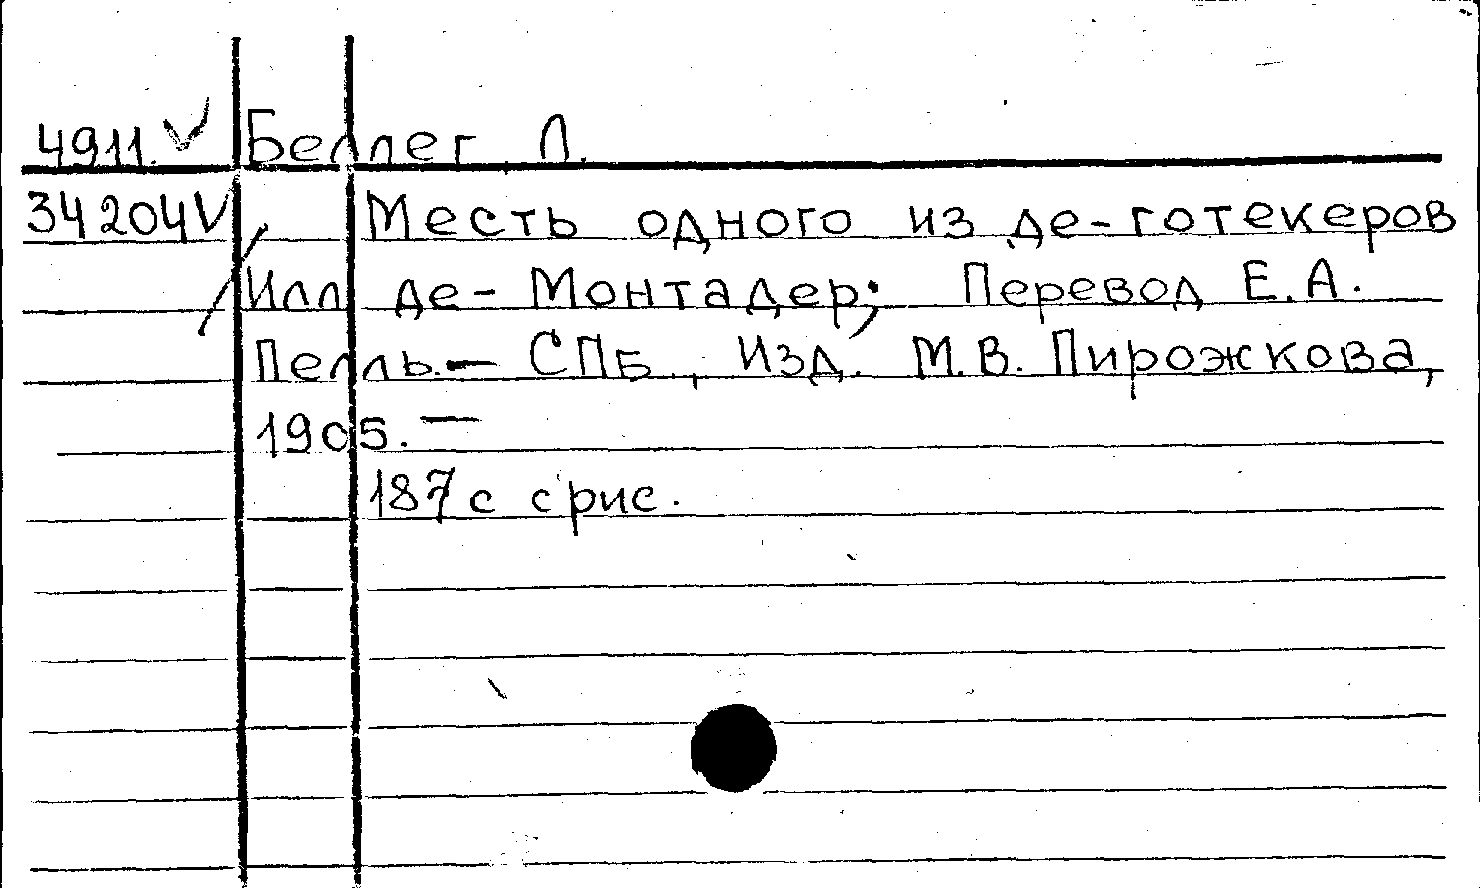 4911. V Беллег, Л.
34204V Месть одного из де-готекеров
/Илл де-Монтадер; Перевод Е.А.
Пелль.— СПБ., Изд. М.В. Пирожкова,
1905.—
187с с рис.